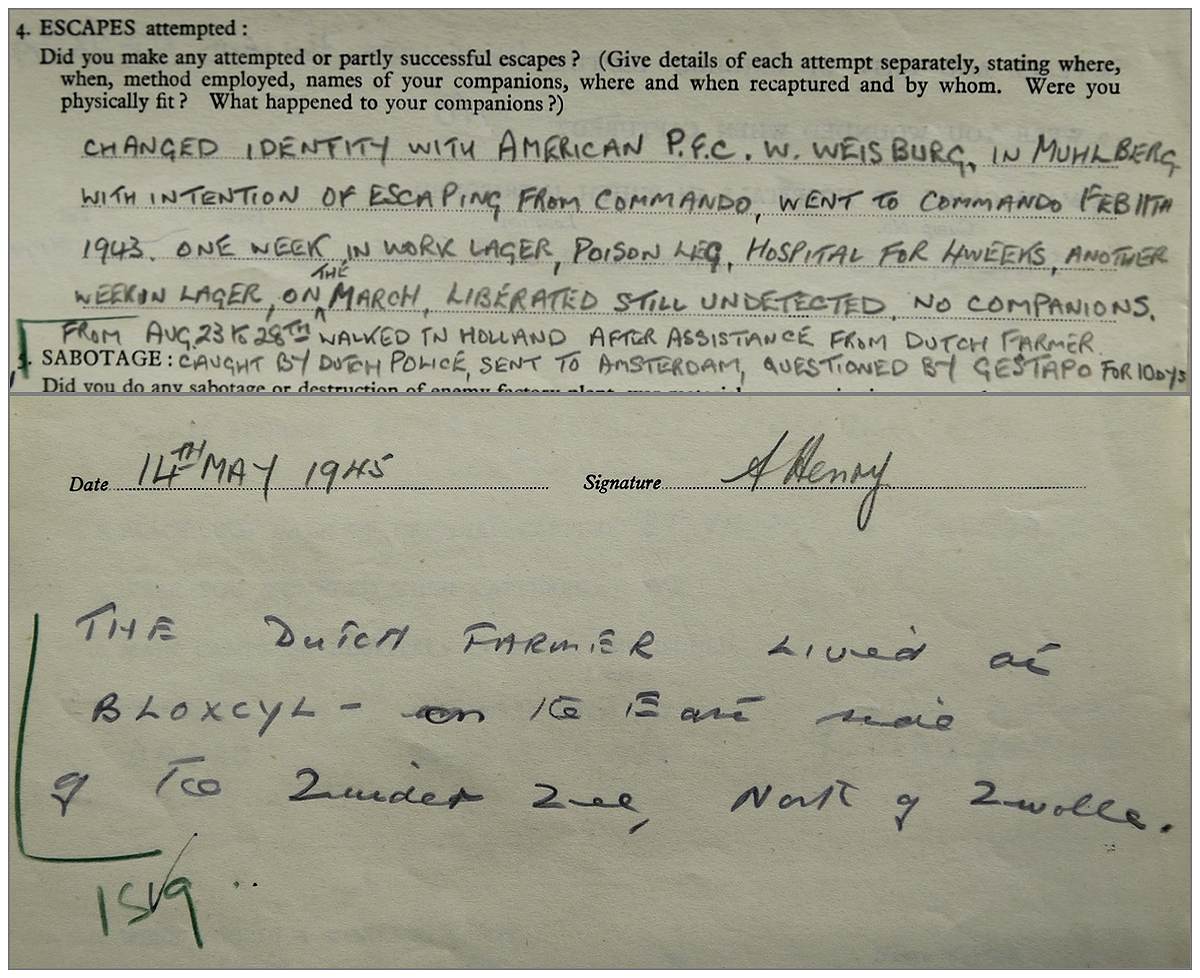 4. ESCAPES attempted :
Did you make any attempted or partly successful escapes ? (Give details of each attempt separately, stating where,
when, method employed, names of your companions, where and when recaptured and by whom. Were you
physically fit ? What happened to your companions ?)
CHANGED IDENTITY WITH AMERICAN P.F.C. W. WEISBURG, IN MUHLBERG
WITH INTENTION OF ESCAPING FROM COMMANDO, WENT TO COMMANDO FEB 11TH
1943. ONE WEEK IN WORK LAGER, POISON LEG, HOSPITAL FOR 4 WEEKS, ANOTHER
THE
WEEK IN LAGER, ON MARCH, LIBERATED STILL UNDETECTED. NO COMPANIONS.
FROM AUG, 23 TO 28TH WALKED IN HOLLAND AFTER ASSISTANCE FROM DUTCH FARMER.
SABOTAGE : CAUGHT BY DUTCH POLICE, SENT TO AMSTERDAM, QUESTIONED BY GESTAPO FOR 10 DYS
Did you do any sabotage or destruction of enemy factory plant,
Date 14TH MAY 1945 Signature A Henry
THE DUTCH FARMER Lived at
BLOXCYL - on the East side
of the Zuider Zee, North of Zwolle.
IS9